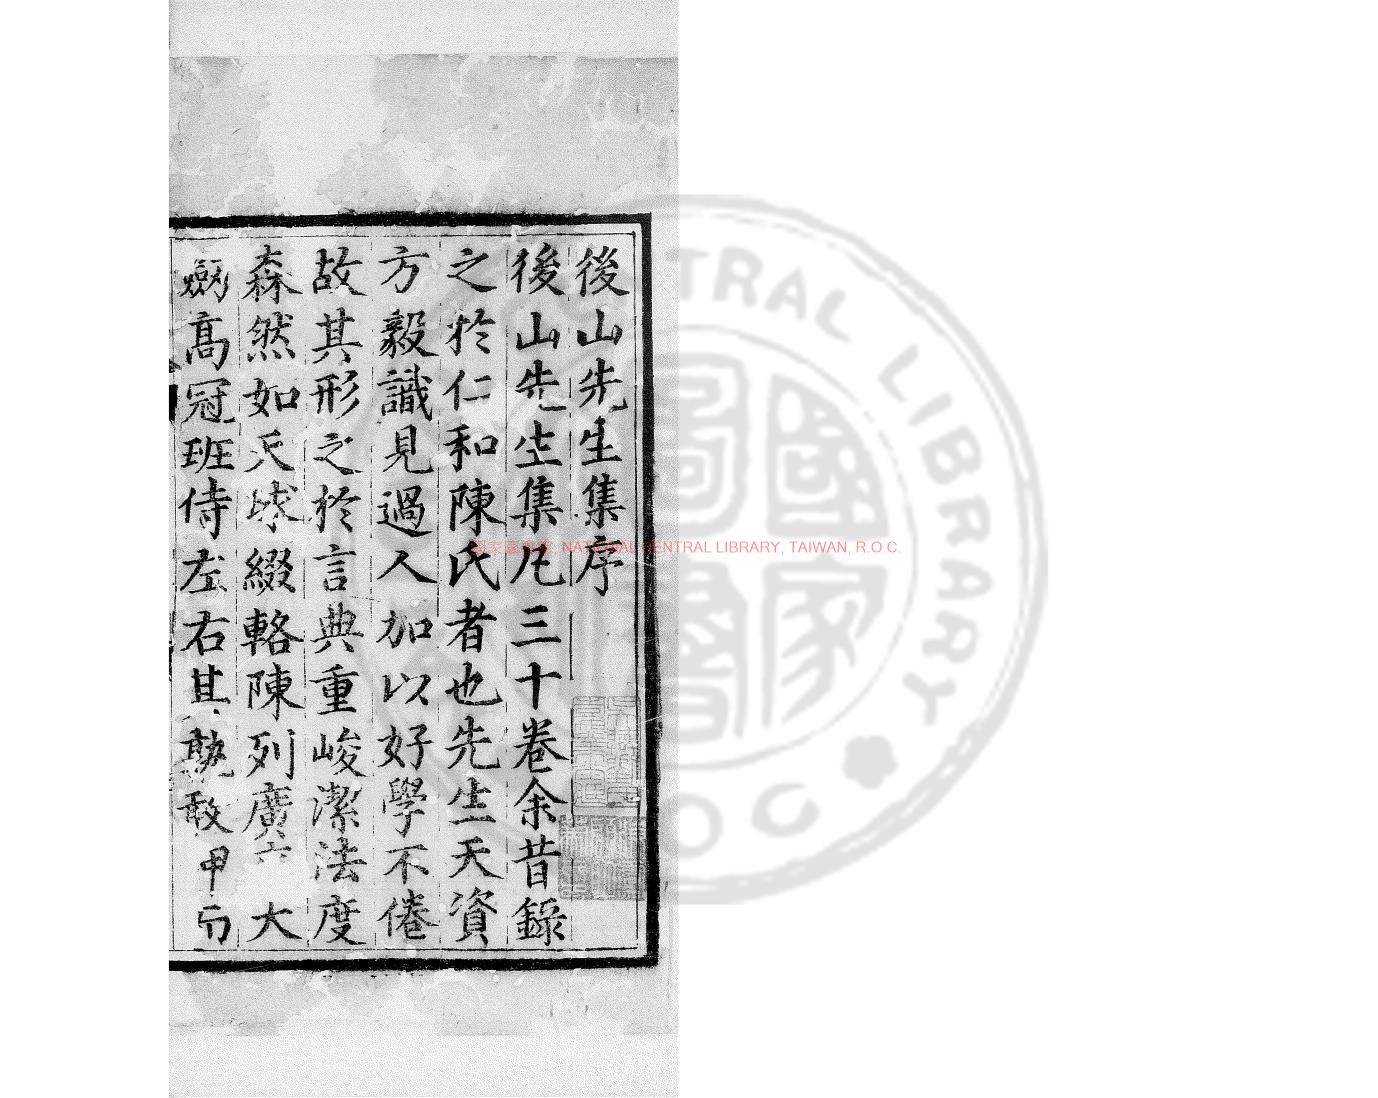 後山先生集序
後山先生集凡三十卷余昔錄
之於仁和陳氏者也先生天資
方毅識見過人加以好學不倦
故其形之於言典重峻潔法度
森然如天球綴輅陳列廣 大
劔高冠班侍左右其孰敢甲而
國家圖書館, NATIONAL CENTRAL LIBRARY, TAIWAN, R.O.C.
CENTRAL LIBRARY
國家圖書
ROC